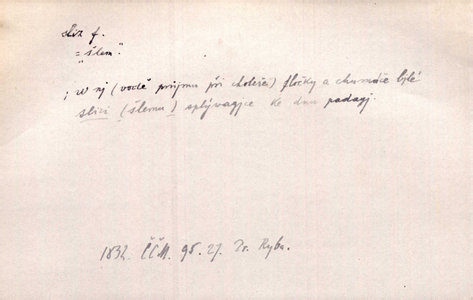 sliz f.
= "šlem".
; w nj (vodě průjmu při choleře) fločky a chumáče bjlé
slizi (šlemu) splývagjce ke dnu padagj.
1832. ČČM. 95.27. Dr. Ryba.